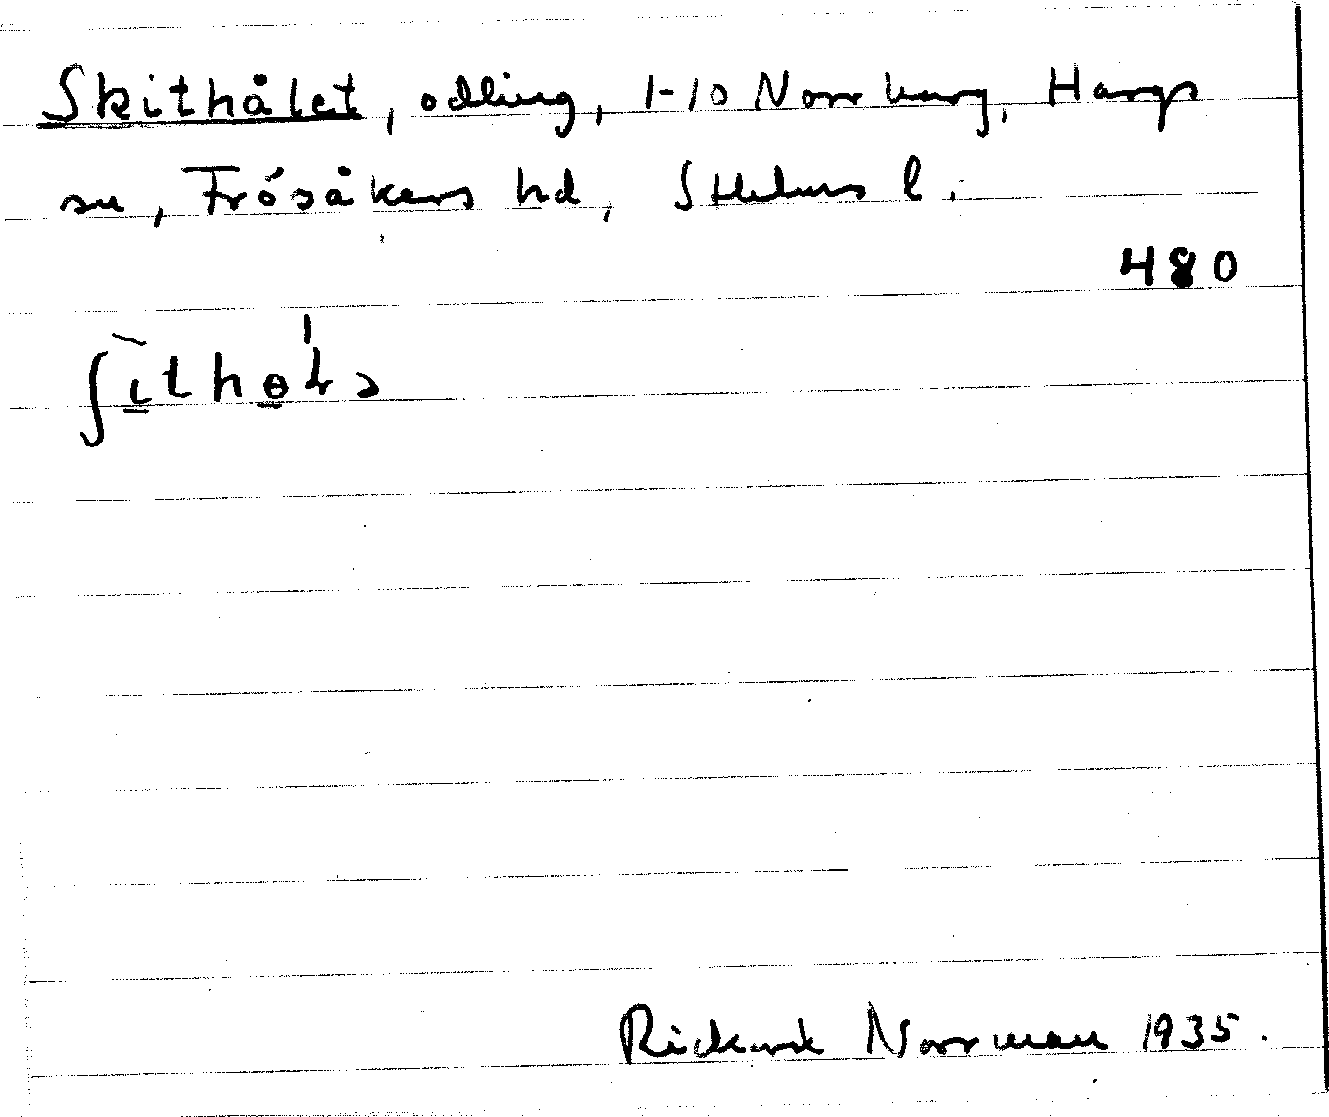 Skithålet, odling, 1-10 Norrharg, Hargs
sn, Frösåkers hd, Sthlms l.
480
Rickard Norrman 1935.